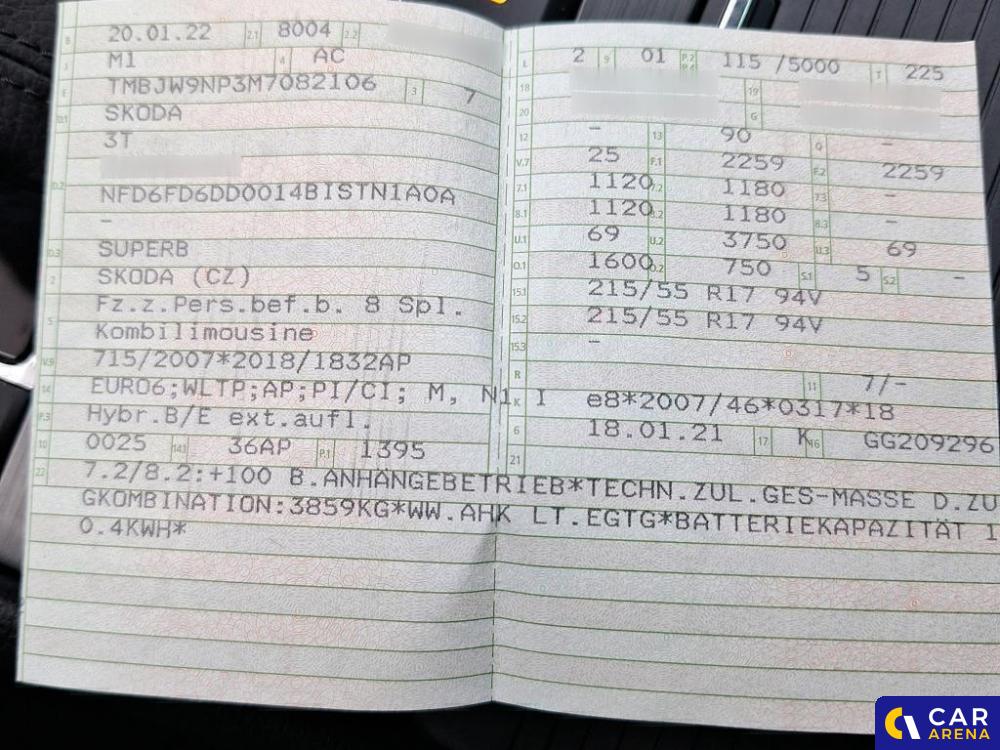 B 20.01.22 2.1 8004 2.2
J M1 4 AC
E TMBJW9NP3M7082106 3 7
D.1 SKODA
3T
D.2
NFD6FD6DD0014BISTN1A0A
-
D.3 SUPERB
2 SKODA (CZ)
5 Fz.z.Pers.bef.b. 8 Spl.
Kombilimousine
V.9 715/2007*2018/1832AP
14 EURO6;WLTP;AP;PI/CI; M, N1 I
P.3 Hybr.B/E ext.aufl.
10 0025 14.1 36AP P.1 1395
L 2 9 01 P.2 P.4 115 /5000 T 225
18 19
20 G
12 - 13 90 Q -
V.7 25 F.1 2259 F.2 2259
7.1 1120 7.2 1180 7.3 -
8.1 1120 8.2 1180 8.3 -
U.1 69 U.2 3750 U.3 69
O.1 1600 O.2 750 S.1 5 S.2 -
15.1 215/55 R17 94V
15.2 215/55 R17 94V
15.3 -
R 11 7/-
K e8*2007/46*0317*18
6 18.01.21 17 K 16 GG209296
21
22 7.2/8.2:+100 B.ANHÄNGEBETRIEB*TECHN.ZUL.GES-MASSE D.ZU
GKOMBINATION:3859KG*WW.AHK LT.EGTG*BATTERIEKAPAZITÄT 1
0.4KWH*
CAR
ARENA